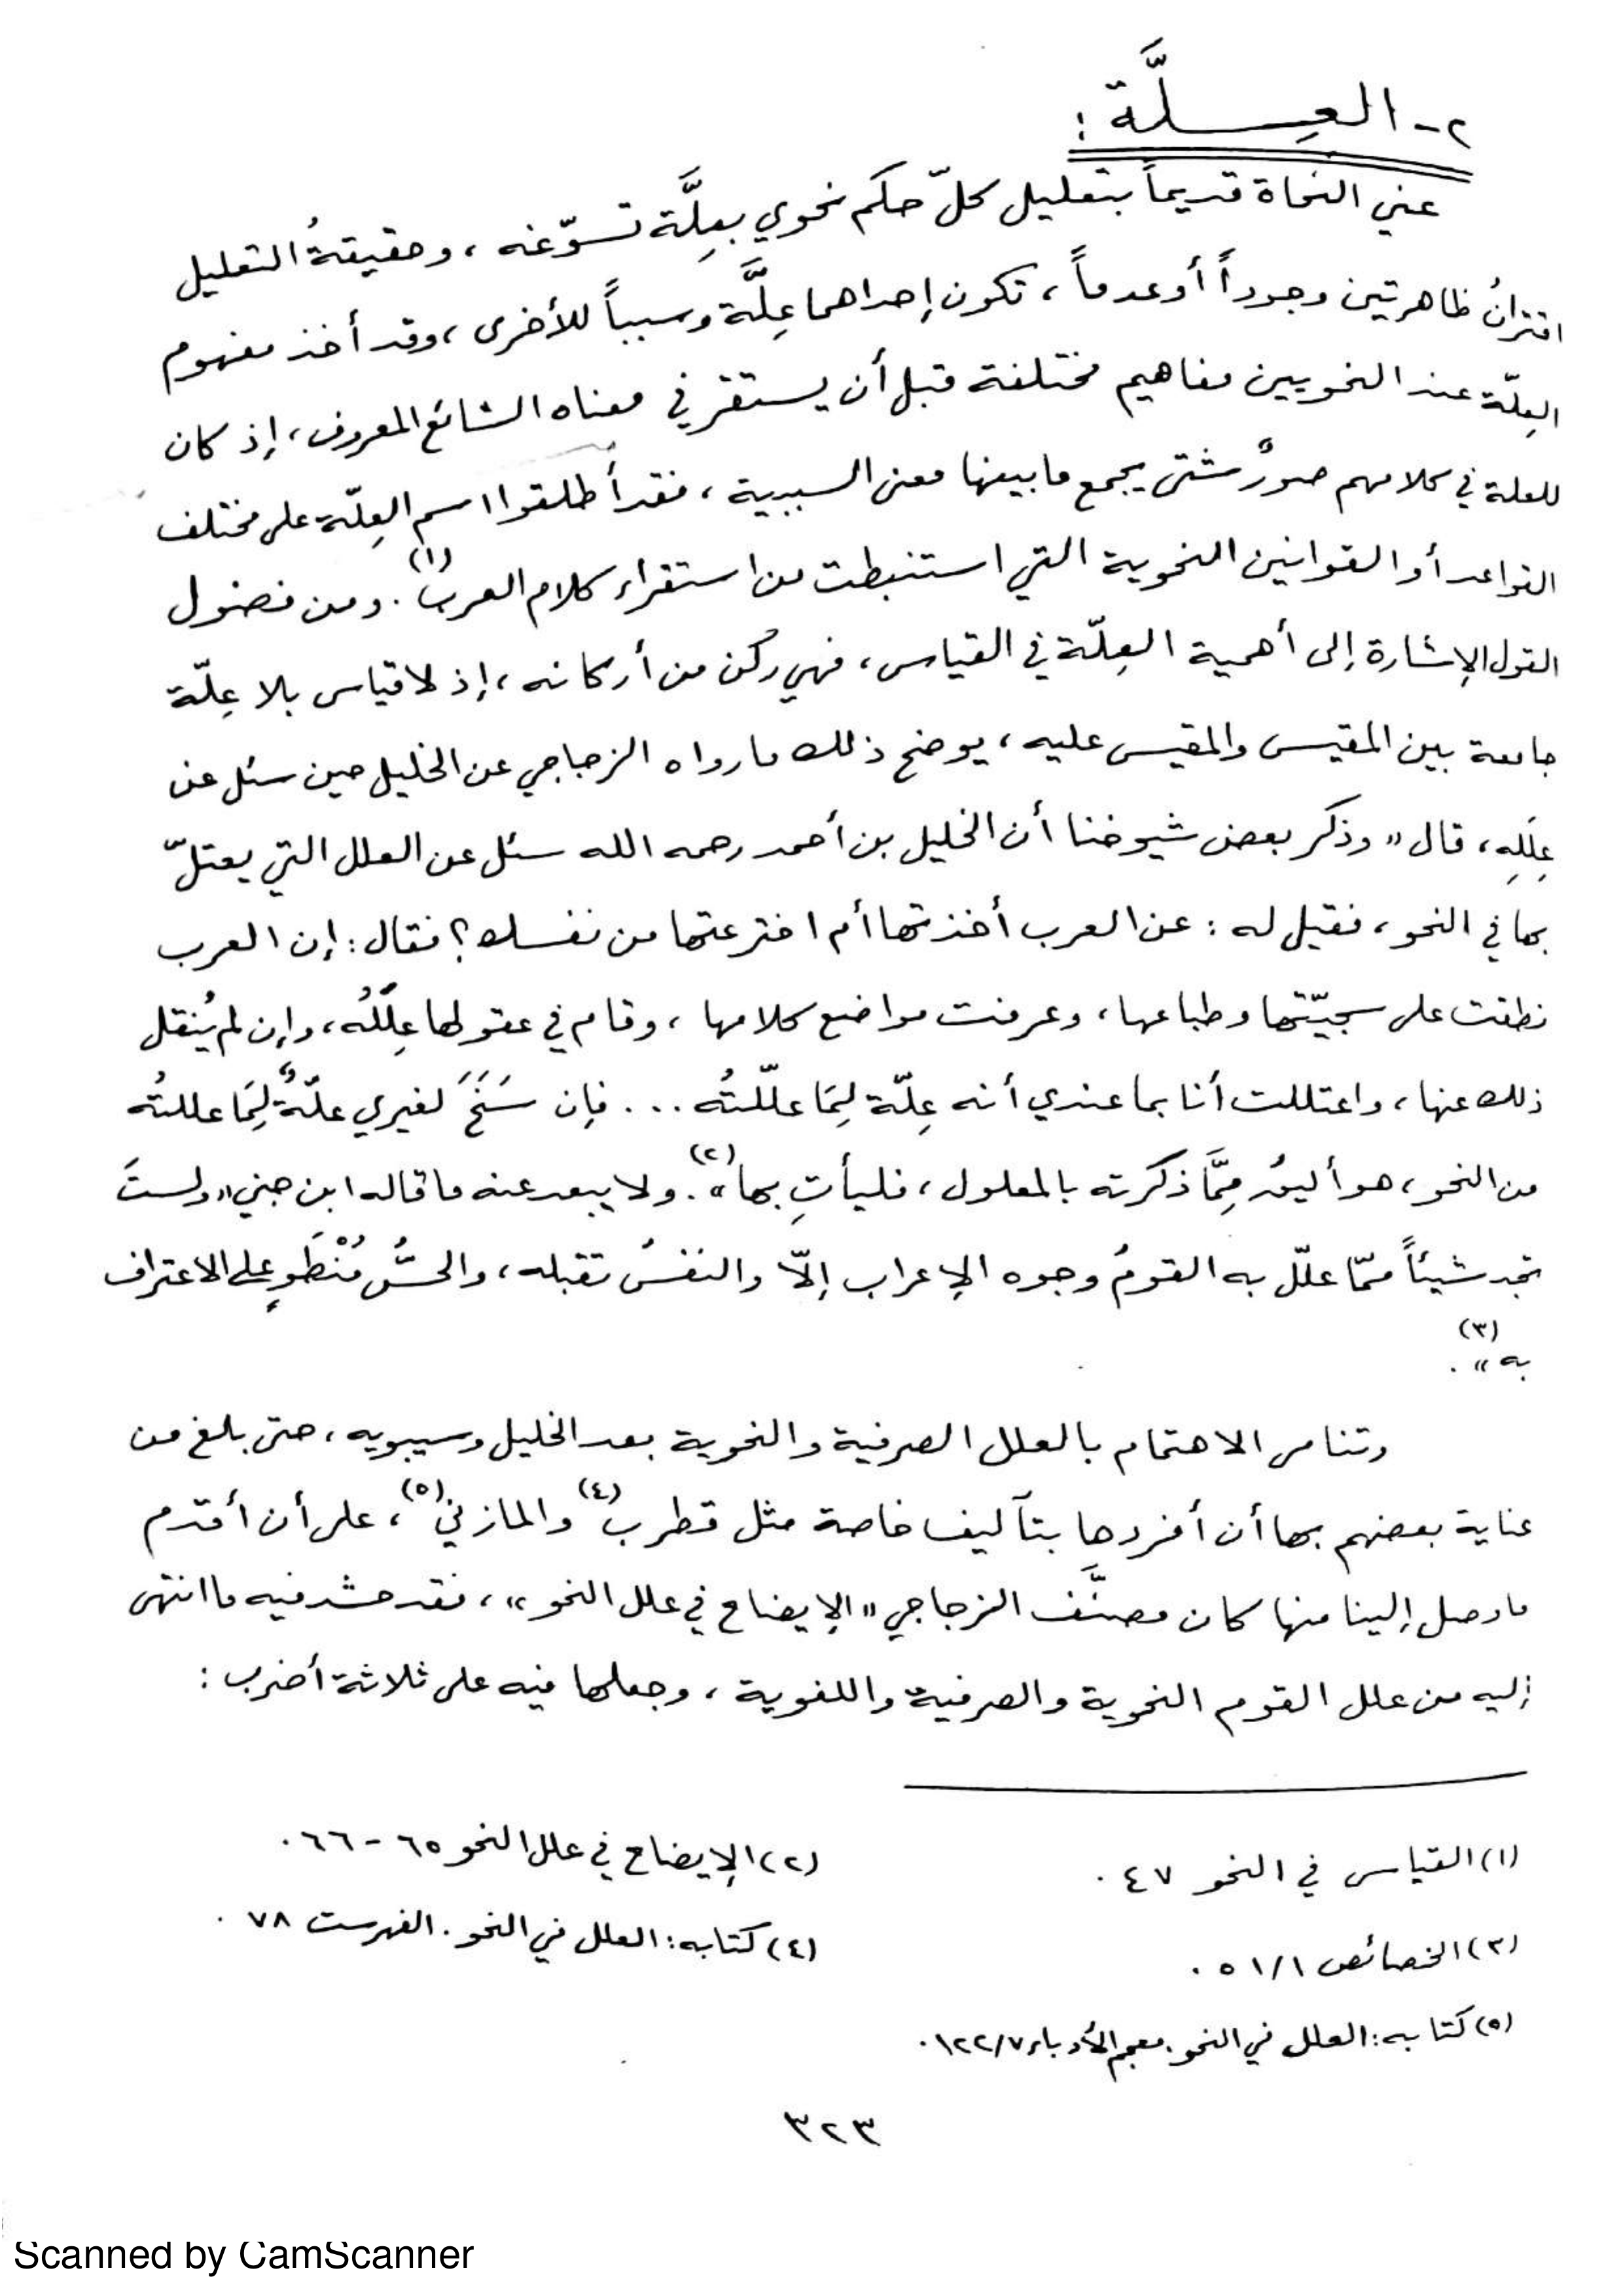 ٢- العِـــلَّة :
عني النحاة قديماً بتعليل كلّ حكم نحوي بعِلَّة تسوّغه ، وحقيقةُ التعليل
اقترانُ ظاهرتين وجوداً أو عدماً ، تكون إحداهما عِلَّة وسبباً للأخرى ، وقد أخذ مفهوم
العِلّة عند النحويين مفاهيم مختلفة قبل أن يستقر في معناه الشائع المعروف ، إذ كان
للعلة في كلامهم صورٌ شتى يجمع ما بينها معنى السببية ، فقد أطلقوا اسم العِلّة على مختلف
القواعد أو القوانين النحوية التي استنبطت من استقراء كلام العرب (١) . ومن فضول
القول الإشارة إلى أهمية العِلّة في القياس ، فهي ركن من أركانه ، إذ لا قياس بلا عِلّة
جامعة بين المقيس والمقيس عليه ، يوضح ذلك ما رواه الزجاجي عن الخليل حين سئل عن
عِلَلِه ، قال « وذكر بعض شيوخنا أن الخليل بن أحمد رحمه الله سئل عن العلل التي يعتلّ
بها في النحو ، فقيل له : عن العرب أخذتها أم اخترعتها من نفسك ؟ فقال : إن العرب
نطقت على سجيّتها وطباعها ، وعرفت مواضع كلامها ، وقام في عقولها عِلَلُه ، وإن لم يُنقل
ذلك عنها ، واعتللت أنا بما عندي أنه عِلّة لِمَا علّلتُه ... فإن سَنَحَ لغيري علّةٌ لِمَا عللتُه
من النحو ، هو أليقُ مِمَّا ذكرته بالمعلول ، فليأتِ بها » (٢) . ولا يبعد عنه ما قاله ابن جني « ولستَ
تجد شيئاً ممّا علّل به القومُ وجوه الإعراب إلّا والنفسُ تقبله ، والحسُّ مُنْطَوٍ على الاعتراف
به » (٣) .
وتنامى الاهتمام بالعلل الصرفية والنحوية بعد الخليل وسيبويه ، حتى بلغ من
عناية بعضهم بها أن أفردها بتآليف خاصة مثل قطرب (٤) والمازني (٥) ، على أن أقدم
ما وصل إلينا منها كان مصنَّف الزجاجي « الإيضاح في علل النحو » ، فقد حشد فيه ما انتهى
إليه من علل القوم النحوية والصرفية واللغوية ، وجعلها فيه على ثلاثة أضرب :
(١) القياس في النحو ٤٧ .
(٢) الإيضاح في علل النحو ٦٥ - ٦٦ .
(٣) الخصائص ٥١/١ .
(٤) كتابه : العلل في النحو . الفهرست ٧٨ .
(٥) كتابه : العلل في النحو . معجم الأدباء ١٢٢/٧ .
٣٢٣
Scanned by CamScanner